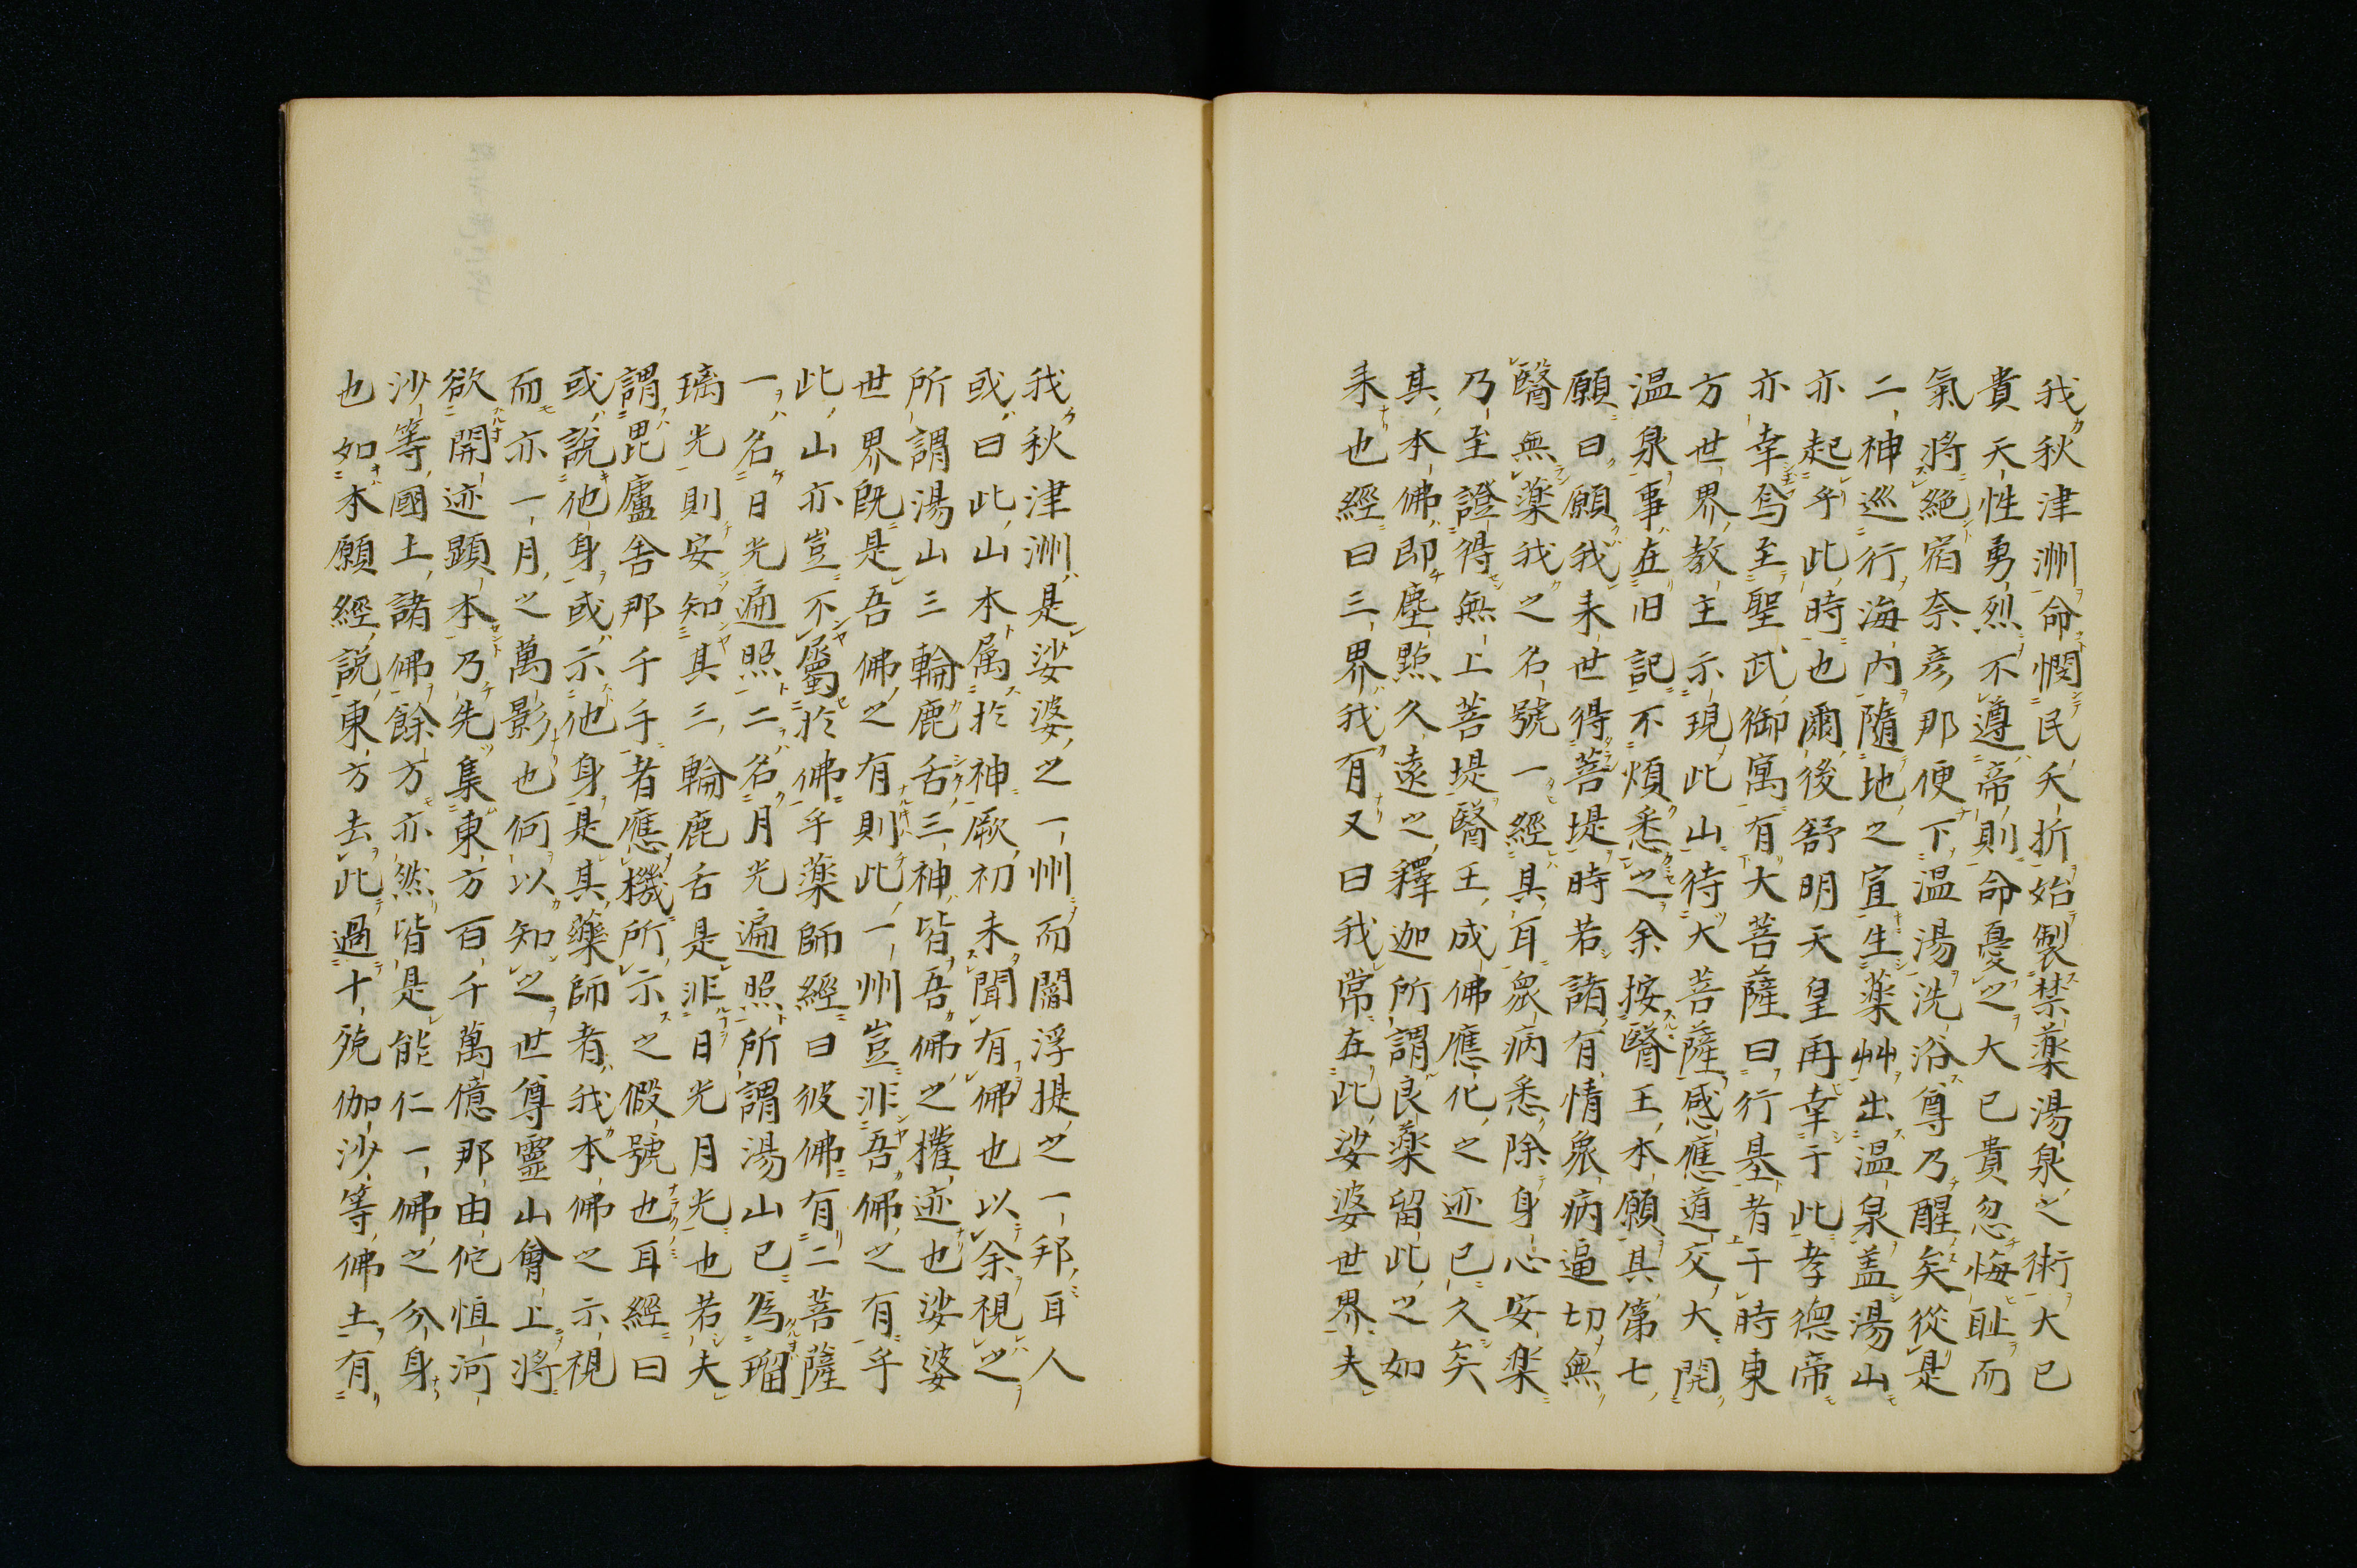 我秋津洲命憫民夭折始製禁薬湯泉之術大已
貴天性勇烈不遵帝則命憂之大已貴忽悔耻而
氣將絕宿奈彦那便下温湯洗浴尊乃醒矣從是
二神巡行海内隨地之宜生薬艸出温泉盖湯山
亦起乎此時也爾後舒明天皇再幸于此孝德帝
亦幸焉至聖武御寓有大菩薩曰行基者于時東
方世界教主示現此山待大菩薩感應道交大開
温泉事在旧記不煩悉之余按醫王本願其第七
願曰願我来世得菩提時若諸有情衆病逼切無
醫無薬我之名號一經其耳衆病悉除身心安楽
乃至證得無上菩提醫王成佛應化之迹已久矣
其本佛即塵點久遠之釋迦所謂良薬留此之如
来也經曰三界我有又曰我常在此娑婆世界夫
我秋津洲是娑婆之一州而閻浮提之一邦耳人
或曰此山本属於神厥初未聞有佛也以余視之
所謂湯山三輪鹿舌三神皆吾佛之權迹也娑婆
世界既是吾佛之有則此一州豈非吾佛之有乎
此山亦豈不屬於佛乎薬師經曰彼佛有二菩薩
一名日光遍照二名月光遍照所謂湯山已為瑠
璃光則安知其三輪鹿舌是非日光月光也若夫
謂毘廬舍那千手者應機所示之假號也耳經曰
或說他身或示他身是其藥師者我本佛之示視
而亦一月之萬影也何以知之世尊靈山會上將
欲開迹顕本乃先集東方百千萬億那由佗恒河
沙等國土諸佛餘方亦然皆是能仁一佛之分身
也如本願經說東方去此過十殑伽沙等佛土有